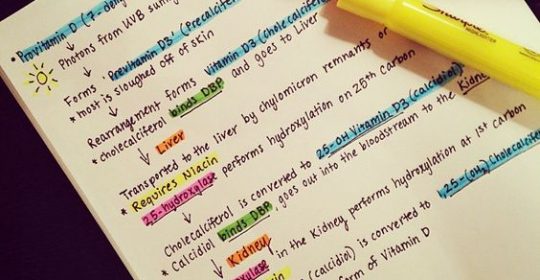 Provitamin D (7-dehy
Photons from UVB sunli
Forms: Previtamin D3 (Precalcifer
* most is sloughed off of skin
Rearrangement forms Vitamin D3 (cholecalcifer
* cholecalciferol binds DBP and goes to Liver
Liver
Transported to the liver by chylomicron remnants or
* Requires Niacin
25-hydroxylase performs hydroxylation on 25th carbon
Cholecalciferol is converted to 25-OH Vitamin D3 (calcidiol)
* Calcidiol binds DBP, goes out into the bloodstream to the Kidney
Kidney
hydroxylase in the Kidney performs hydroxylation at 1st carbon
(calcidiol) is converted to 1,25-(OH)2 cholecalcifer
form of Vitamin D
Sharpie